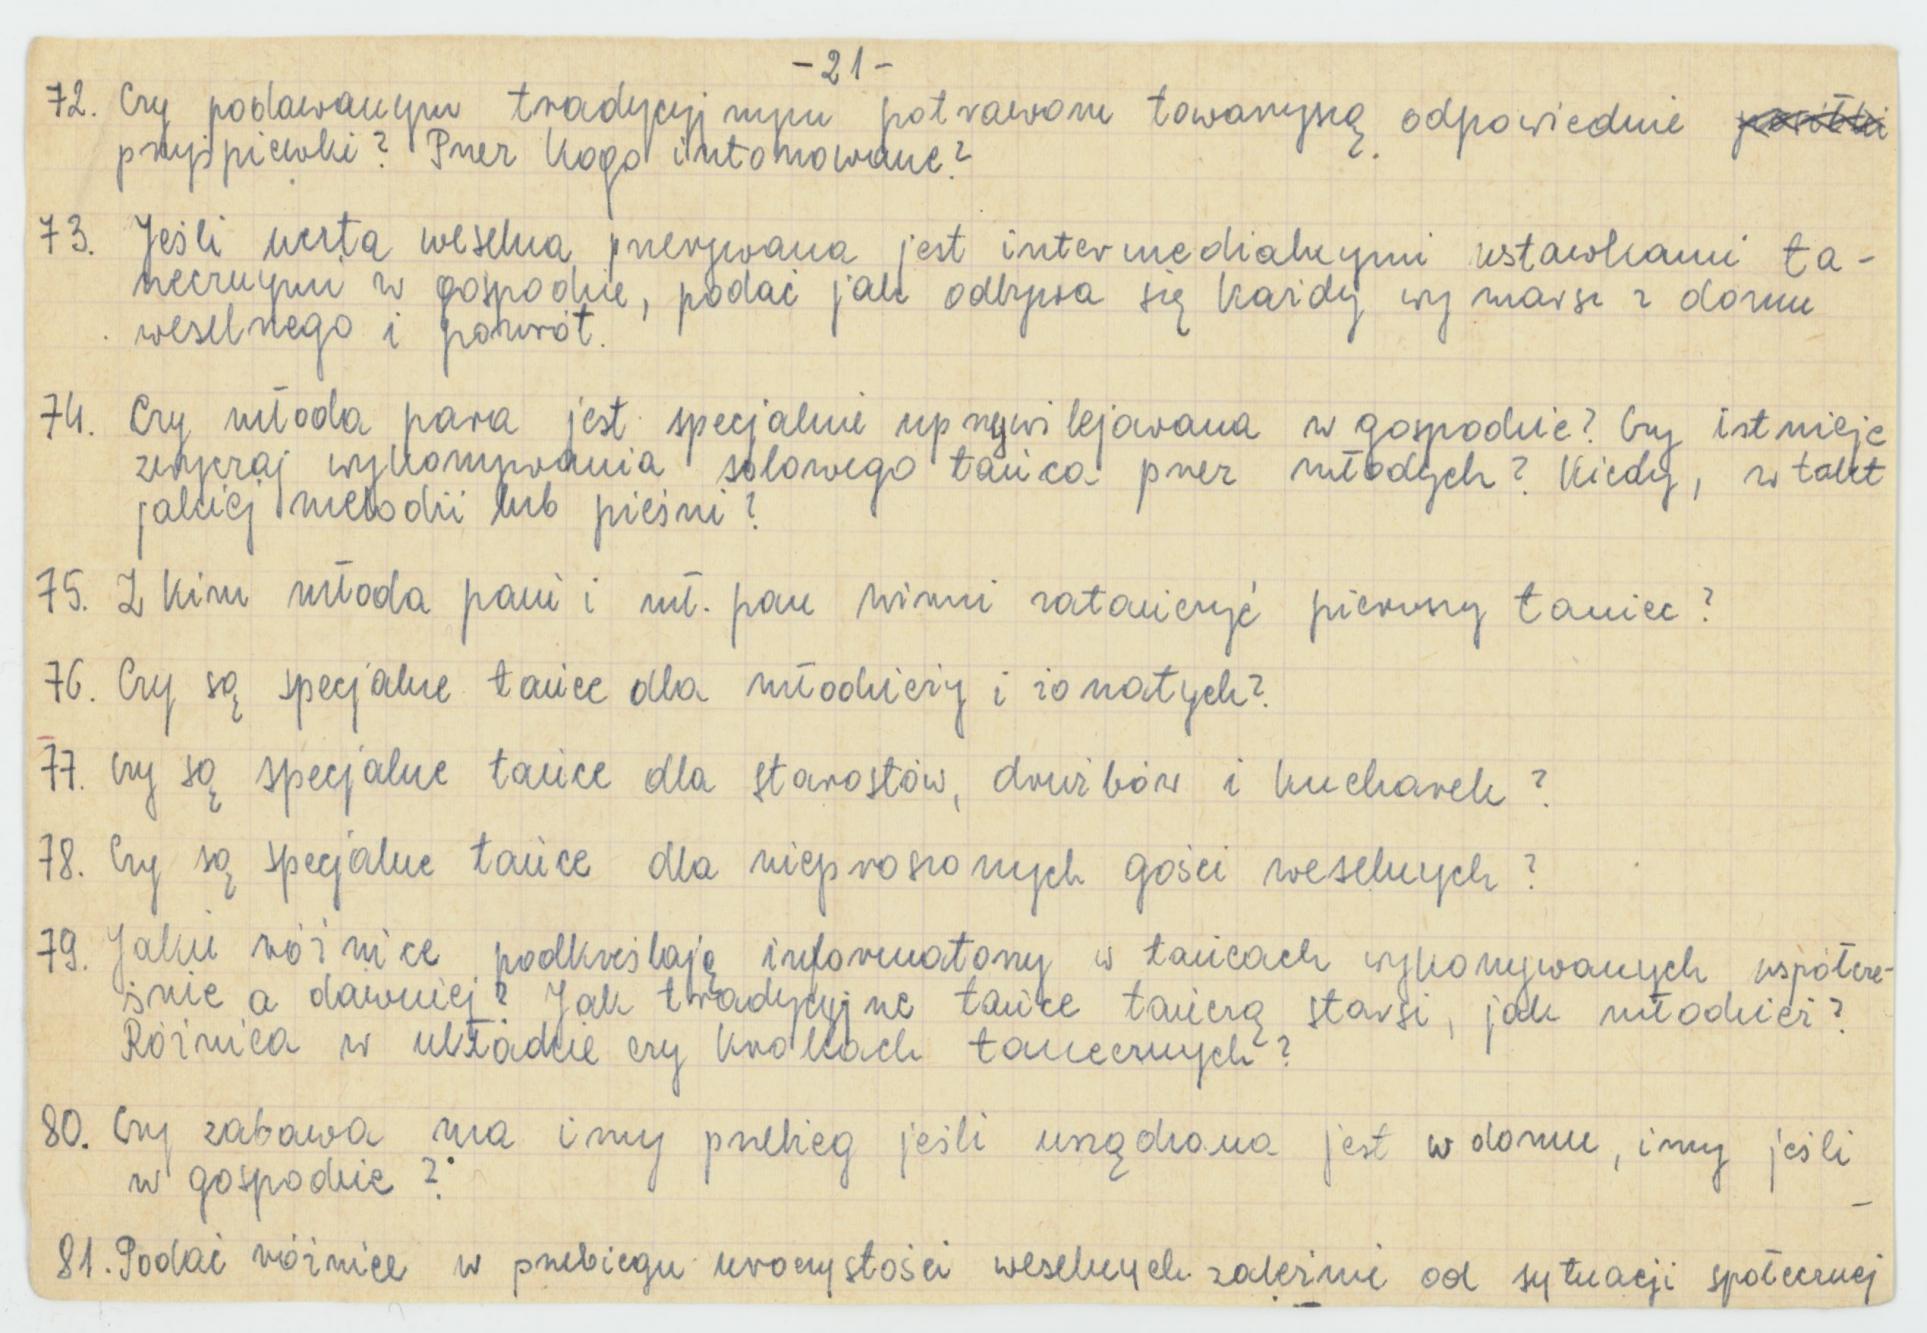 -21-
72. Czy podawanym tradycyjnym potrawom towarzyszą odpowiednie
przyśpiewki? Przez kogo intonowane?
73. Jeśli uczta weselna przerywana jest intermedialnymi wstawkami ta-
necznymi w gospodzie, podać jak odbywa się każdy wymarsz z domu
weselnego i powrót.
74. Czy młoda para jest specjalnie uprzywilejowana w gospodzie? Czy istnieje
zwyczaj wykonywania solowego tańca przez młodych? Kiedy, w takt
jakiej melodii lub pieśni?
75. Z kim młoda pani i mł. pan winni zatańczyć pierwszy taniec?
76. Czy są specjalne tańce dla młodzieży i żonatych?
77. Czy są specjalne tańce dla starostów, drużbów i kucharek?
78. Czy są specjalne tańce dla nieproszonych gości weselnych?
79. Jakie różnice podkreślają informatorzy w tańcach wykonywanych współcze-
śnie a dawniej? Jak tradycyjne tańce tańczą starsi, jak młodzież?
Różnica w układzie czy krokach tanecznych?
80. Czy zabawa ma inny przebieg jeśli urządzona jest w domu, inny jeśli
w gospodzie?
81. Podać różnice w przebiegu uroczystości weselnych zależnie od sytuacji społecznej